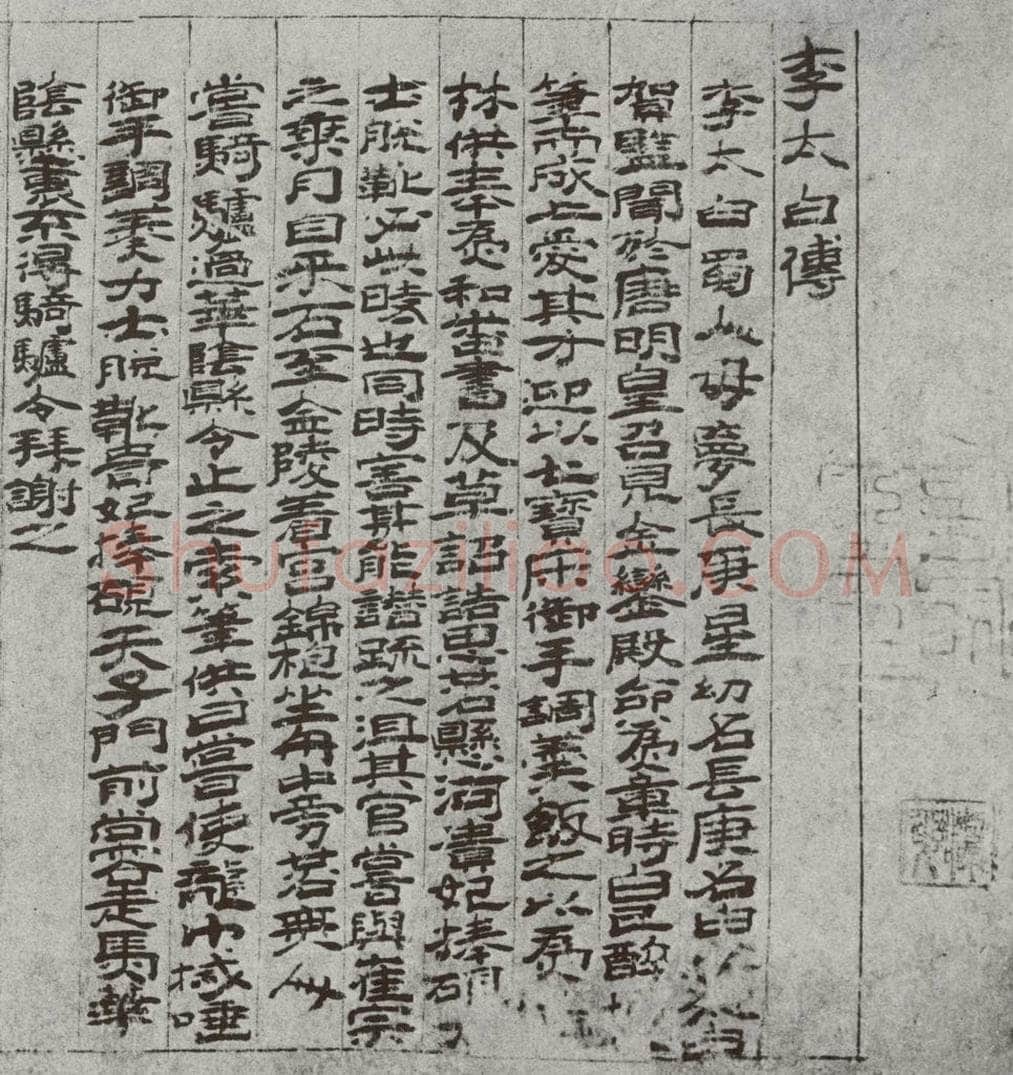 李太白傳
李太白蜀人母夢長庚星幼名長庚名白
賀監聞於唐明皇召見金鑾殿命爲章時白已醉
筆而成上愛其才迎以七寶床御手調羹飯之以爲
林供奉爲和蕃書及草詔誥思若懸河貴妃捧硯力
士脫靴正此時也同時害其能譖疏之沮其官嘗與崔宗
之乘月自采石至金陵着宮錦袍坐舟中旁若無人
嘗騎驢過華陰縣令止之索筆供曰嘗使龍巾拭唾
御手調羹力士脫靴貴妃捧硯天子門前常容走馬華
陰縣裏不得騎驢令拜謝之
Shufaziliao.COM